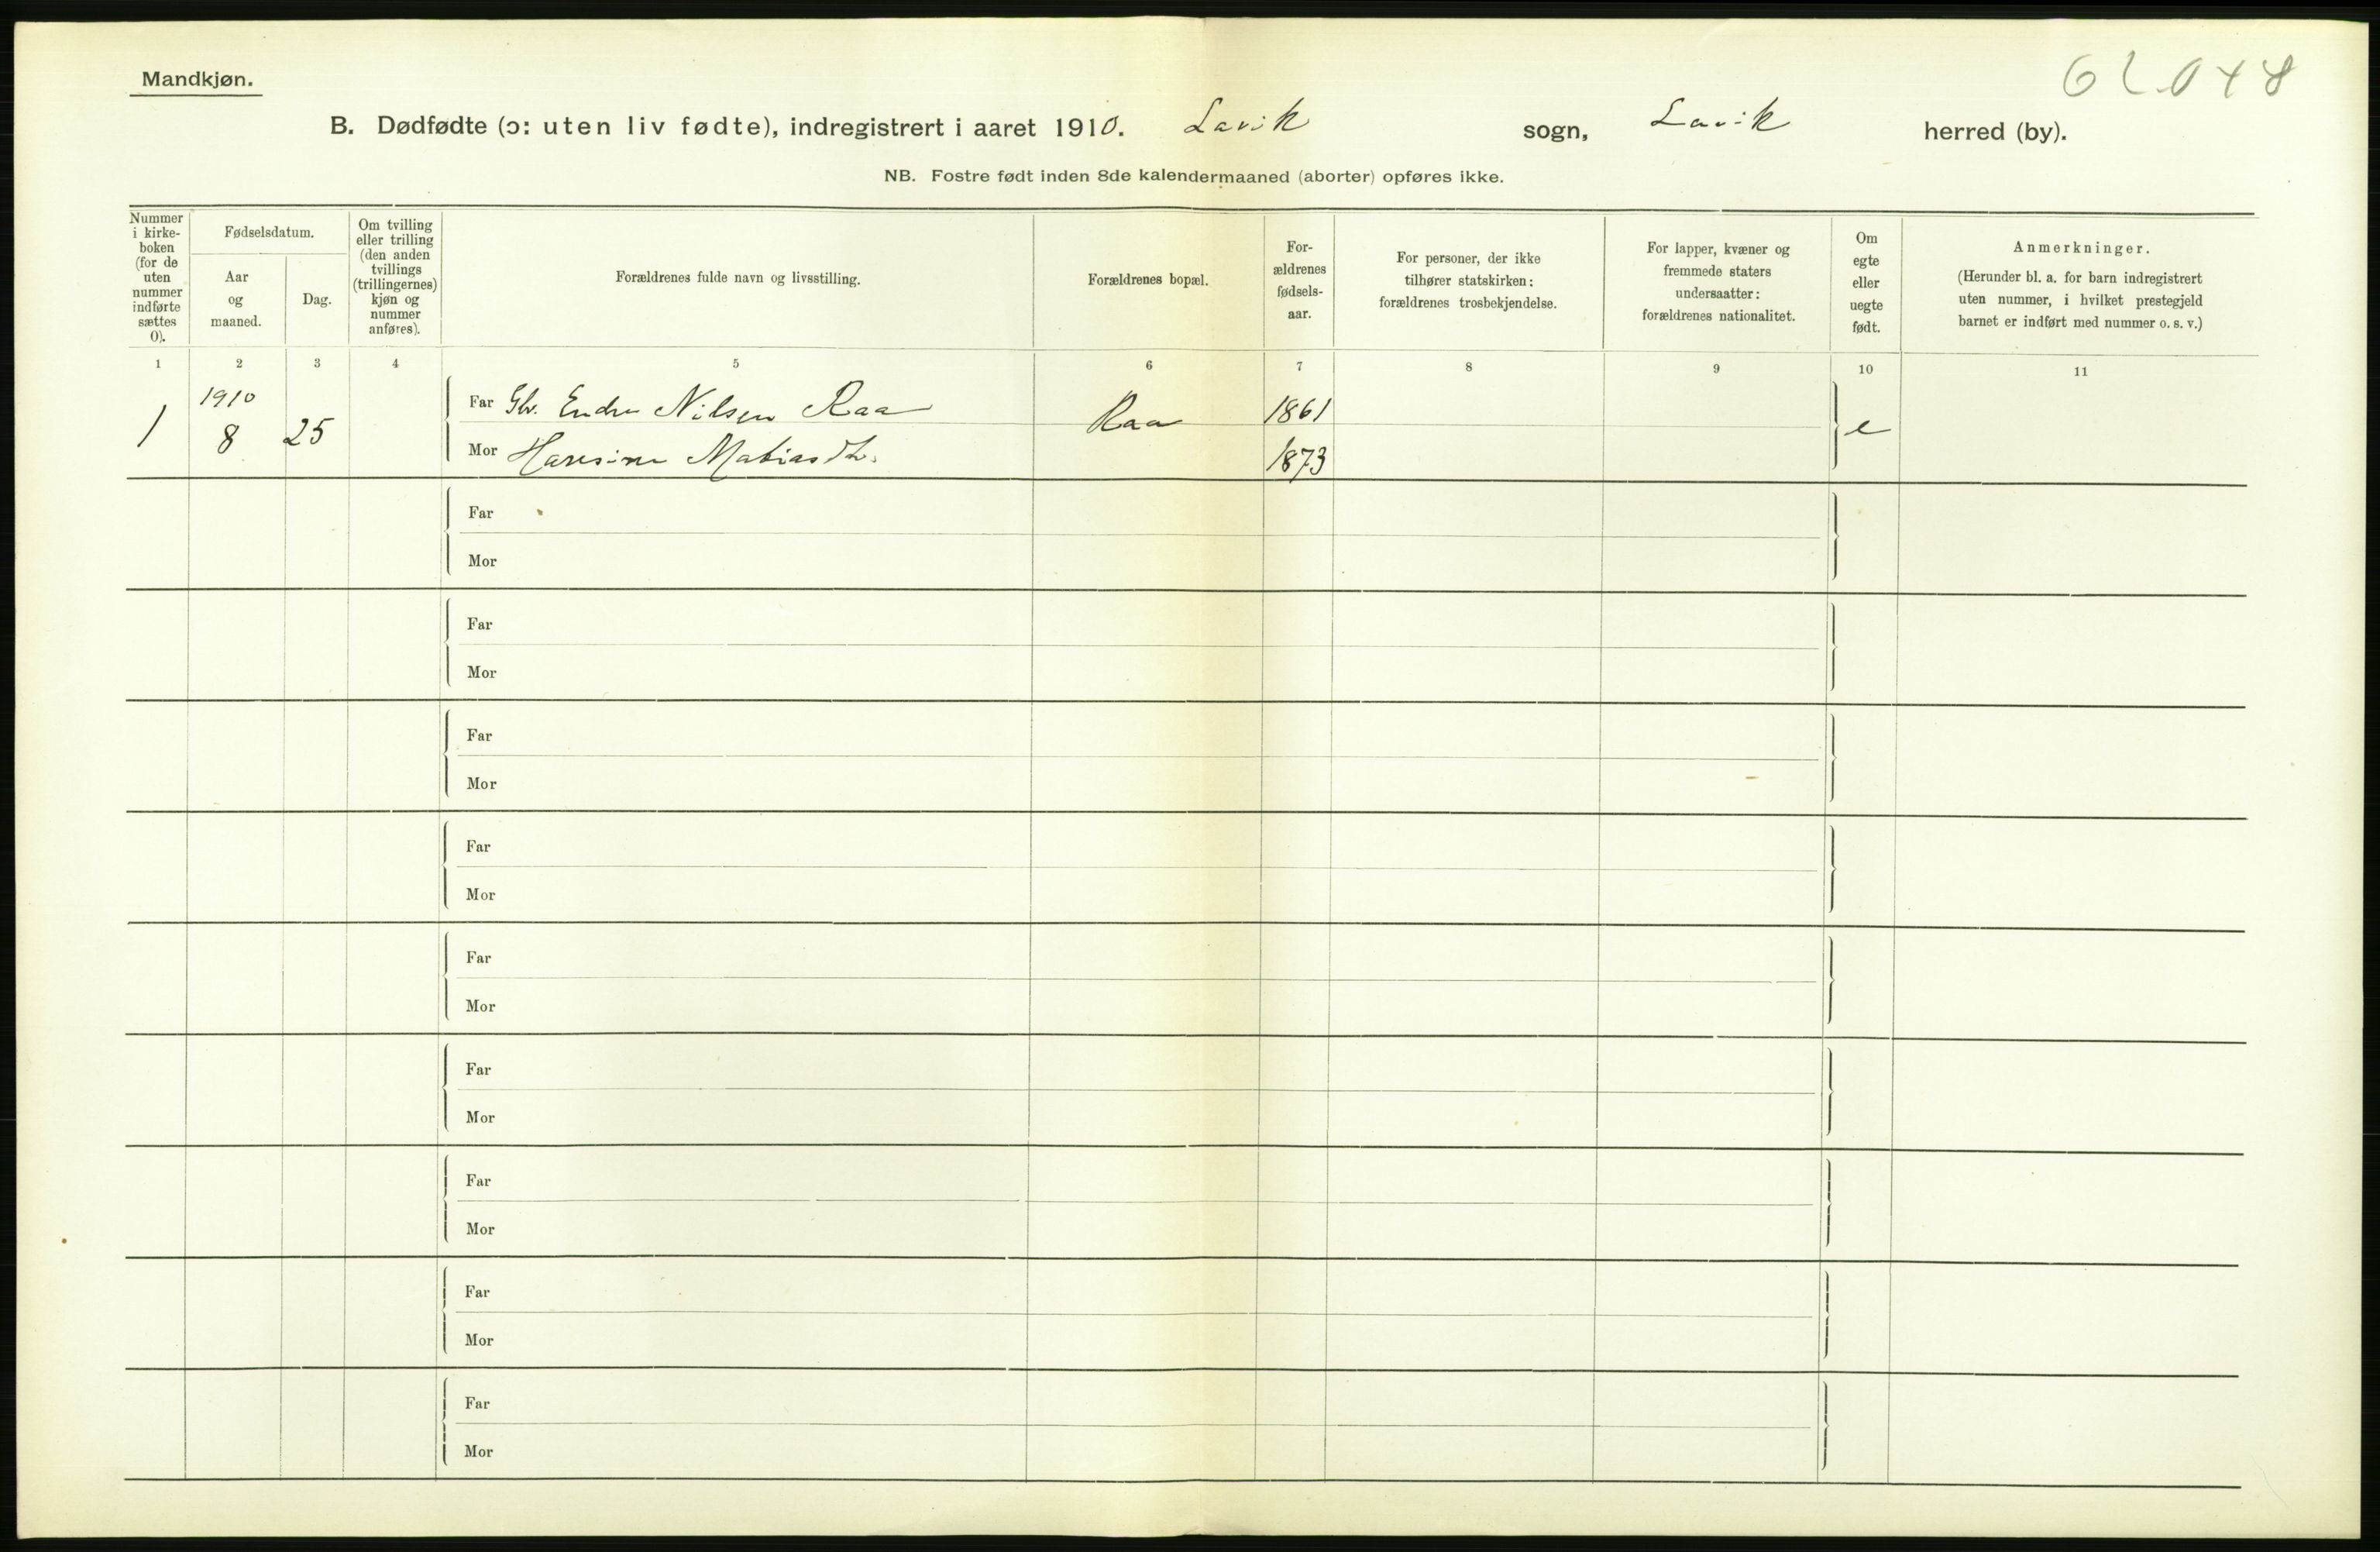 Mandkjøn.
B. Dødfødte (ɔ: uten liv fødte), indregistrert i aaret 1910. Lavik sogn, Lavik herred (by).
NB. Fostre født inden 8de kalendermaaned (aborter) opføres ikke.
Nummer
i kirke-
boken
(for de
uten
nummer
indførte
sættes
0).
Fødselsdatum.
Aar
og
maaned.
Dag.
Om tvilling
eller trilling
(den anden
tvillings
(trillingernes)
kjøn og
nummer
anføres).
Forældrenes fulde navn og livsstilling.
Forældrenes bopæl.
For-
ældrenes
fødsels-
aar.
For personer, der ikke
tilhører statskirken:
forældrenes trosbekjendelse.
For lapper, kvæner og
fremmede staters
undersaatter:
forældrenes nationalitet.
Om
egte
eller
uegte
født.
Anmerkninger.
(Herunder bl. a. for barn indregistrert
uten nummer, i hvilket prestegjeld
barnet er indført med nummer o. s. v.)
1 2 3 4 5 6 7 8 9 10 11
1910
1 8 25
Far Gbr. Endre Nilsen Raa Raa 1861 e
Mor Matiasdtr. 1873
Far
Mor
Far
Mor
Far
Mor
Far
Mor
Far
Mor
Far
Mor
Far
Mor
Far
Mor
Far
Mor